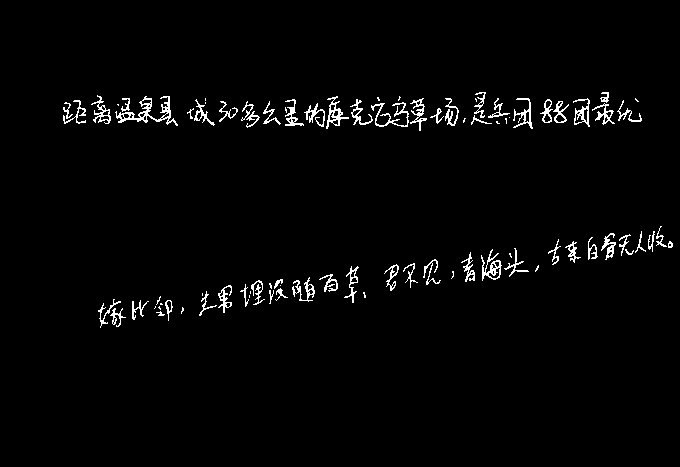 距离温泉县城30多公里的库克它乌草场,是兵团88团最优
嫁比邻,生男埋没随百草、君不见,青海头,古来白骨无人收。